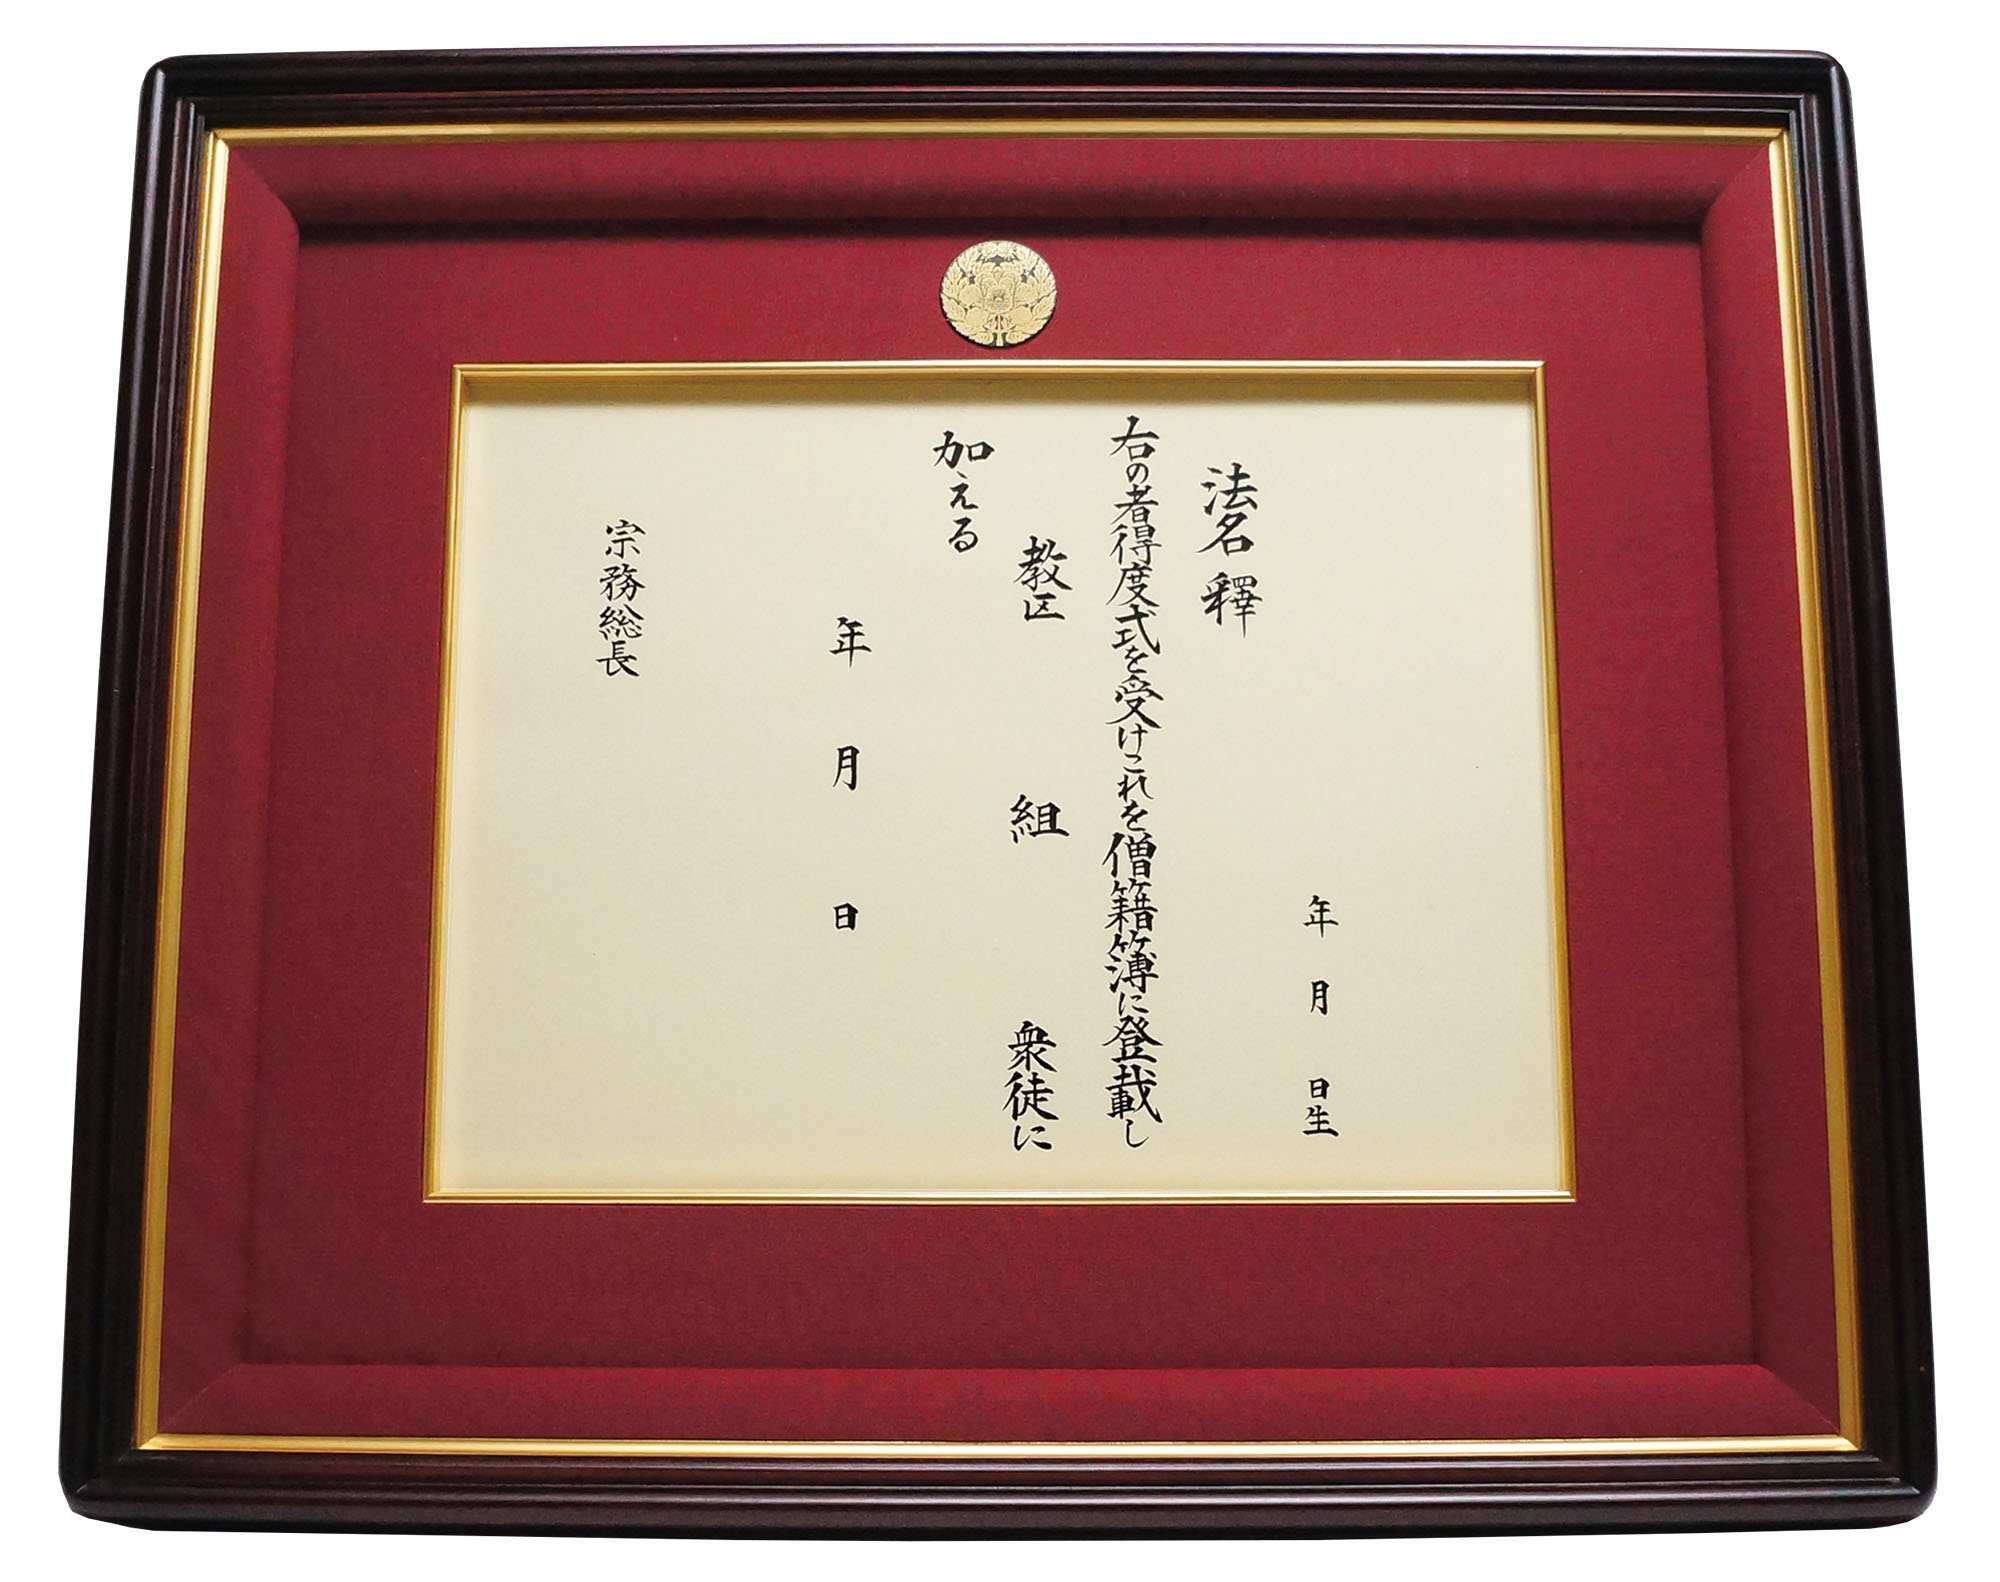 年 月 日生
法名 釋
右の者得度式を受けこれを僧籍簿に登載し
教区 組 衆徒に
加える
年 月 日
宗務総長